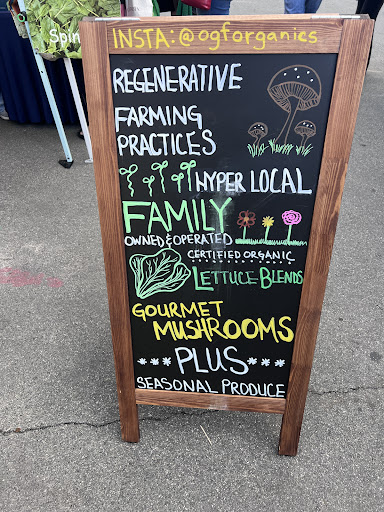 Spin
INSTA: @ogforganics
REGENERATIVE
FARMING
PRACTICES
HYPER LOCAL
FAMILY
OWNED & OPERATED
CERTIFIED ORGANIC
LETTUCE BLENDS
GOURMET
MUSHROOMS
PLUS
SEASONAL PRODUCE